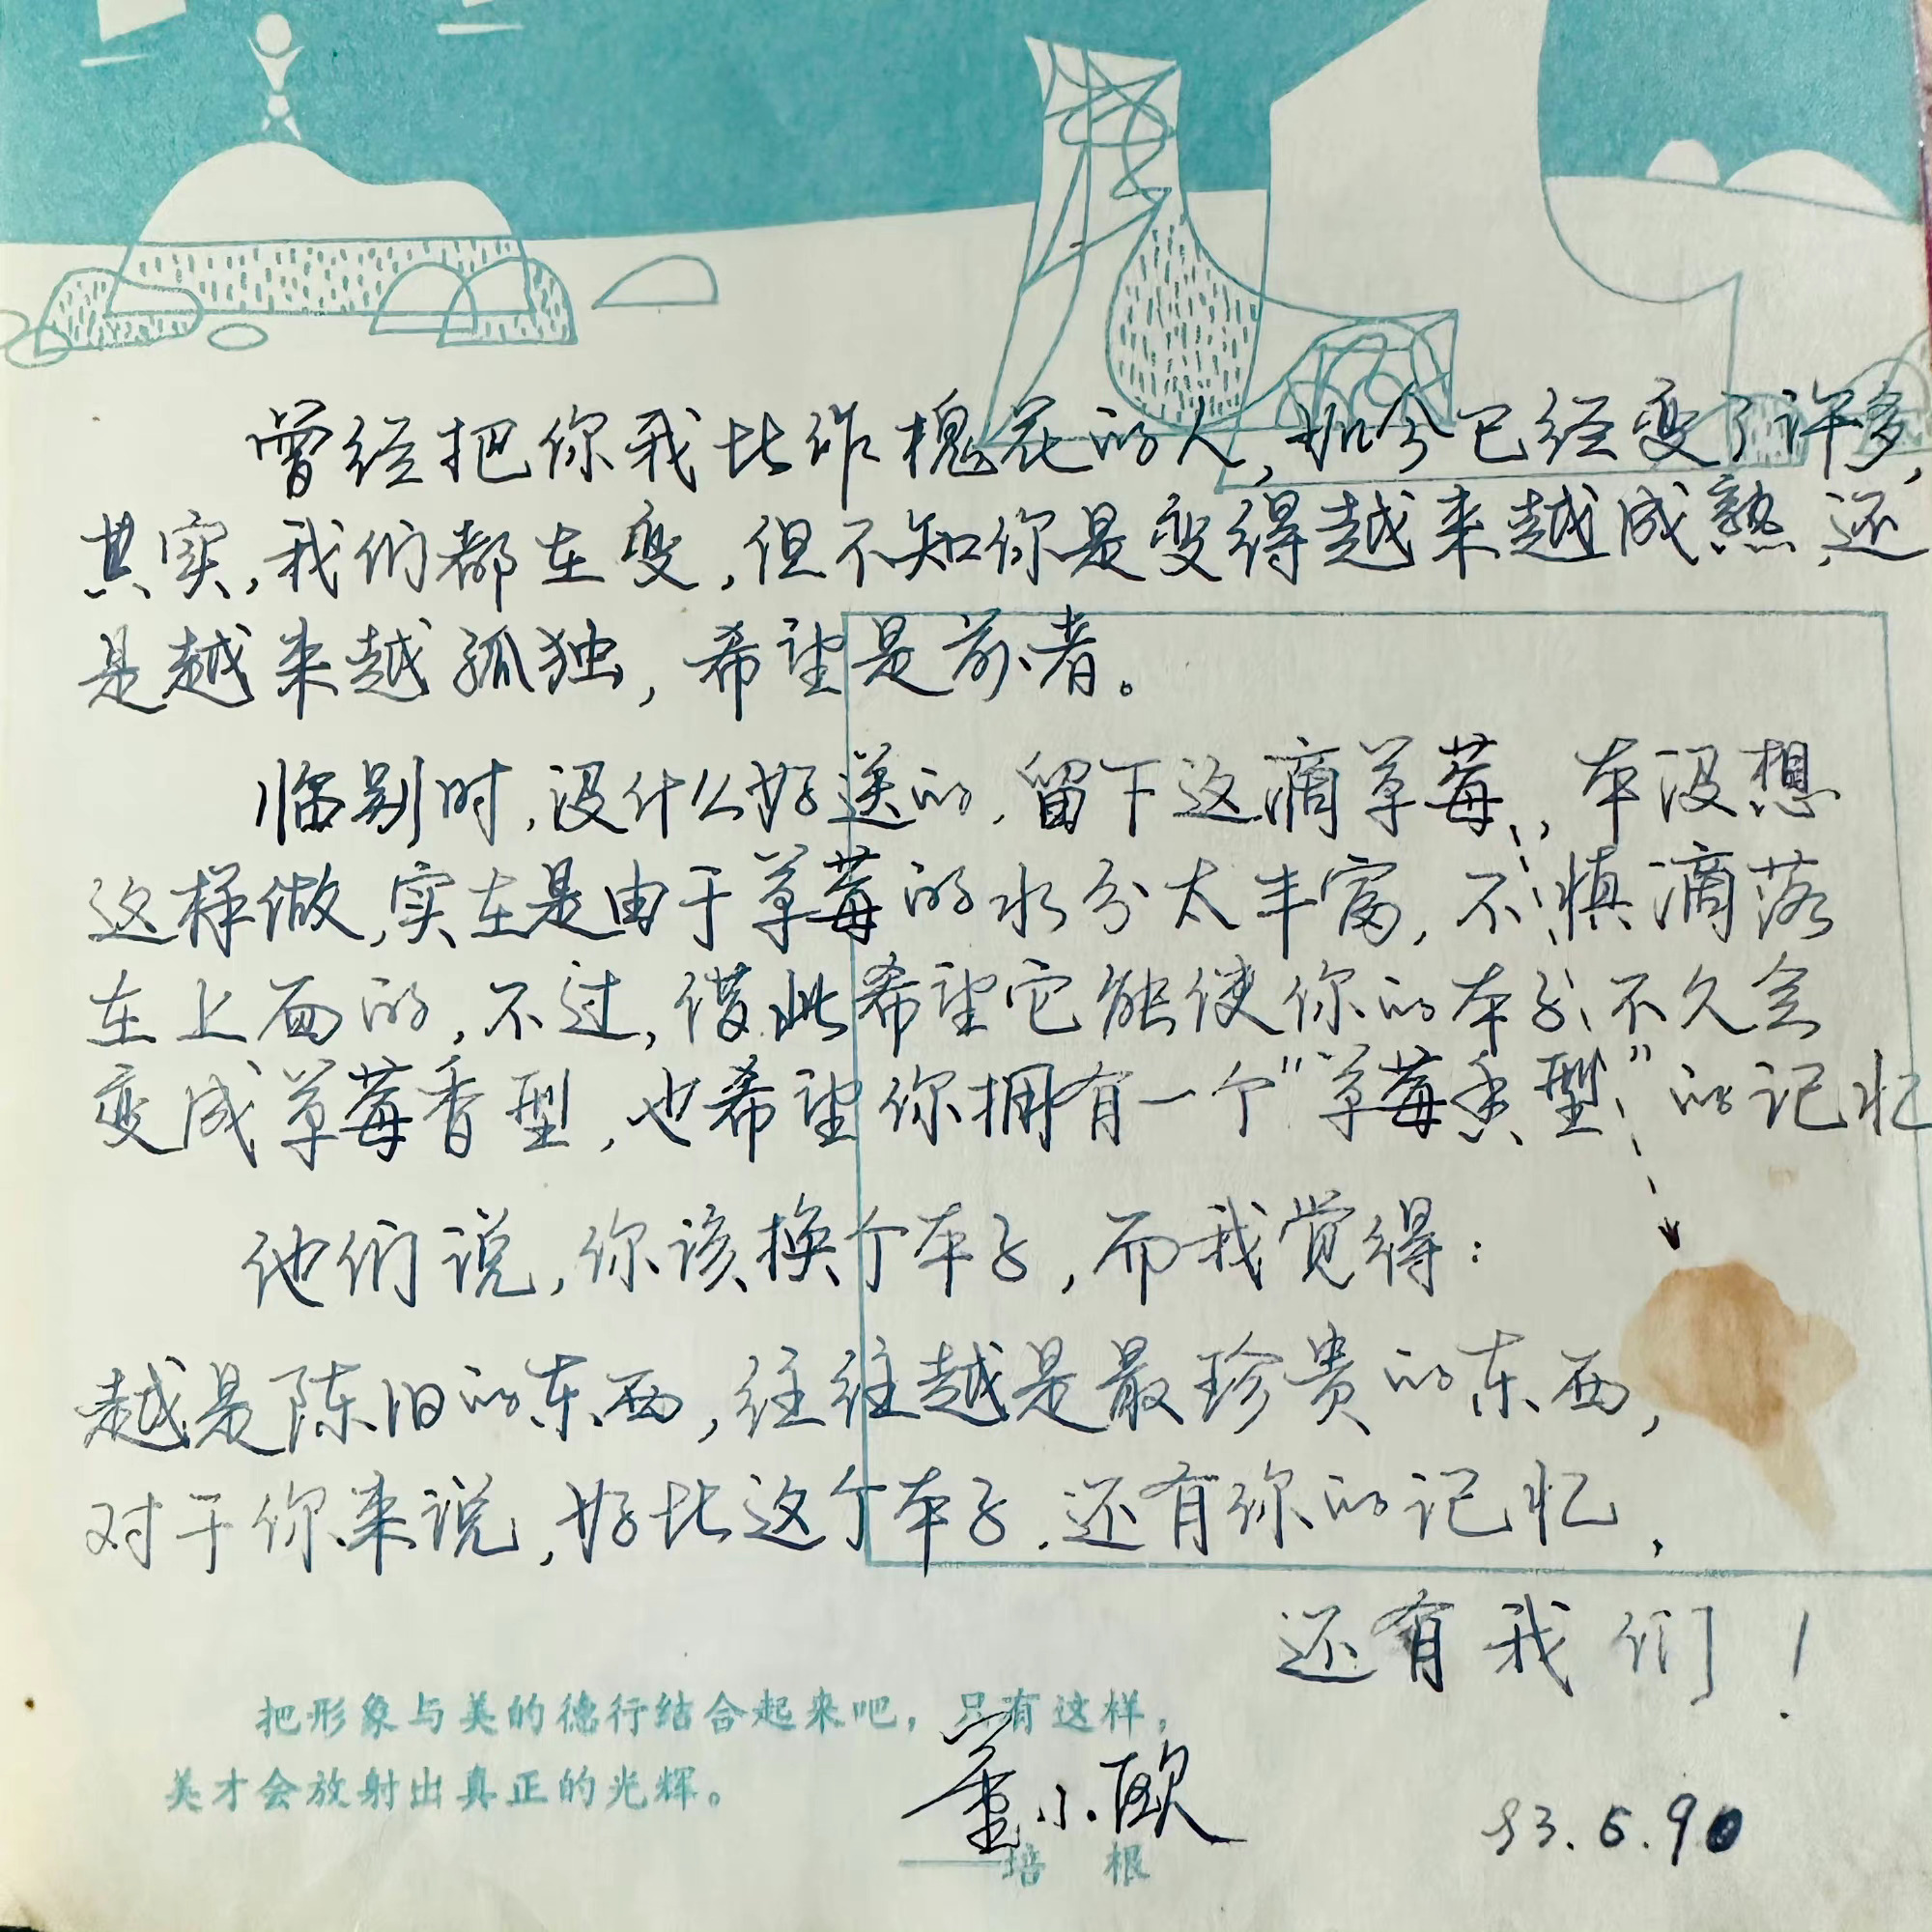 曾经把你我比作槐花的人，如今已经变了许多，
其实，我们都在变，但不知你是变得越来越成熟，还
是越来越孤独，希望是前者。
临别时，没什么好送的，留下这滴草莓，本没想
这样做，实在是由于草莓的水分太丰富，不慎滴落
在上面的，不过，借此希望它能使你的本子不久会
变成草莓香型，也希望你拥有一个“草莓香型”的记忆
他们说，你该换个本子，而我觉得：
越是陈旧的东西，往往越是最珍贵的东西，
对于你来说，好比这个本子，还有你的记忆，
还有我们！
把形象与美的德行结合起来吧，只有这样，
美才会放射出真正的光辉。
——培 根
小欧
93.6.9